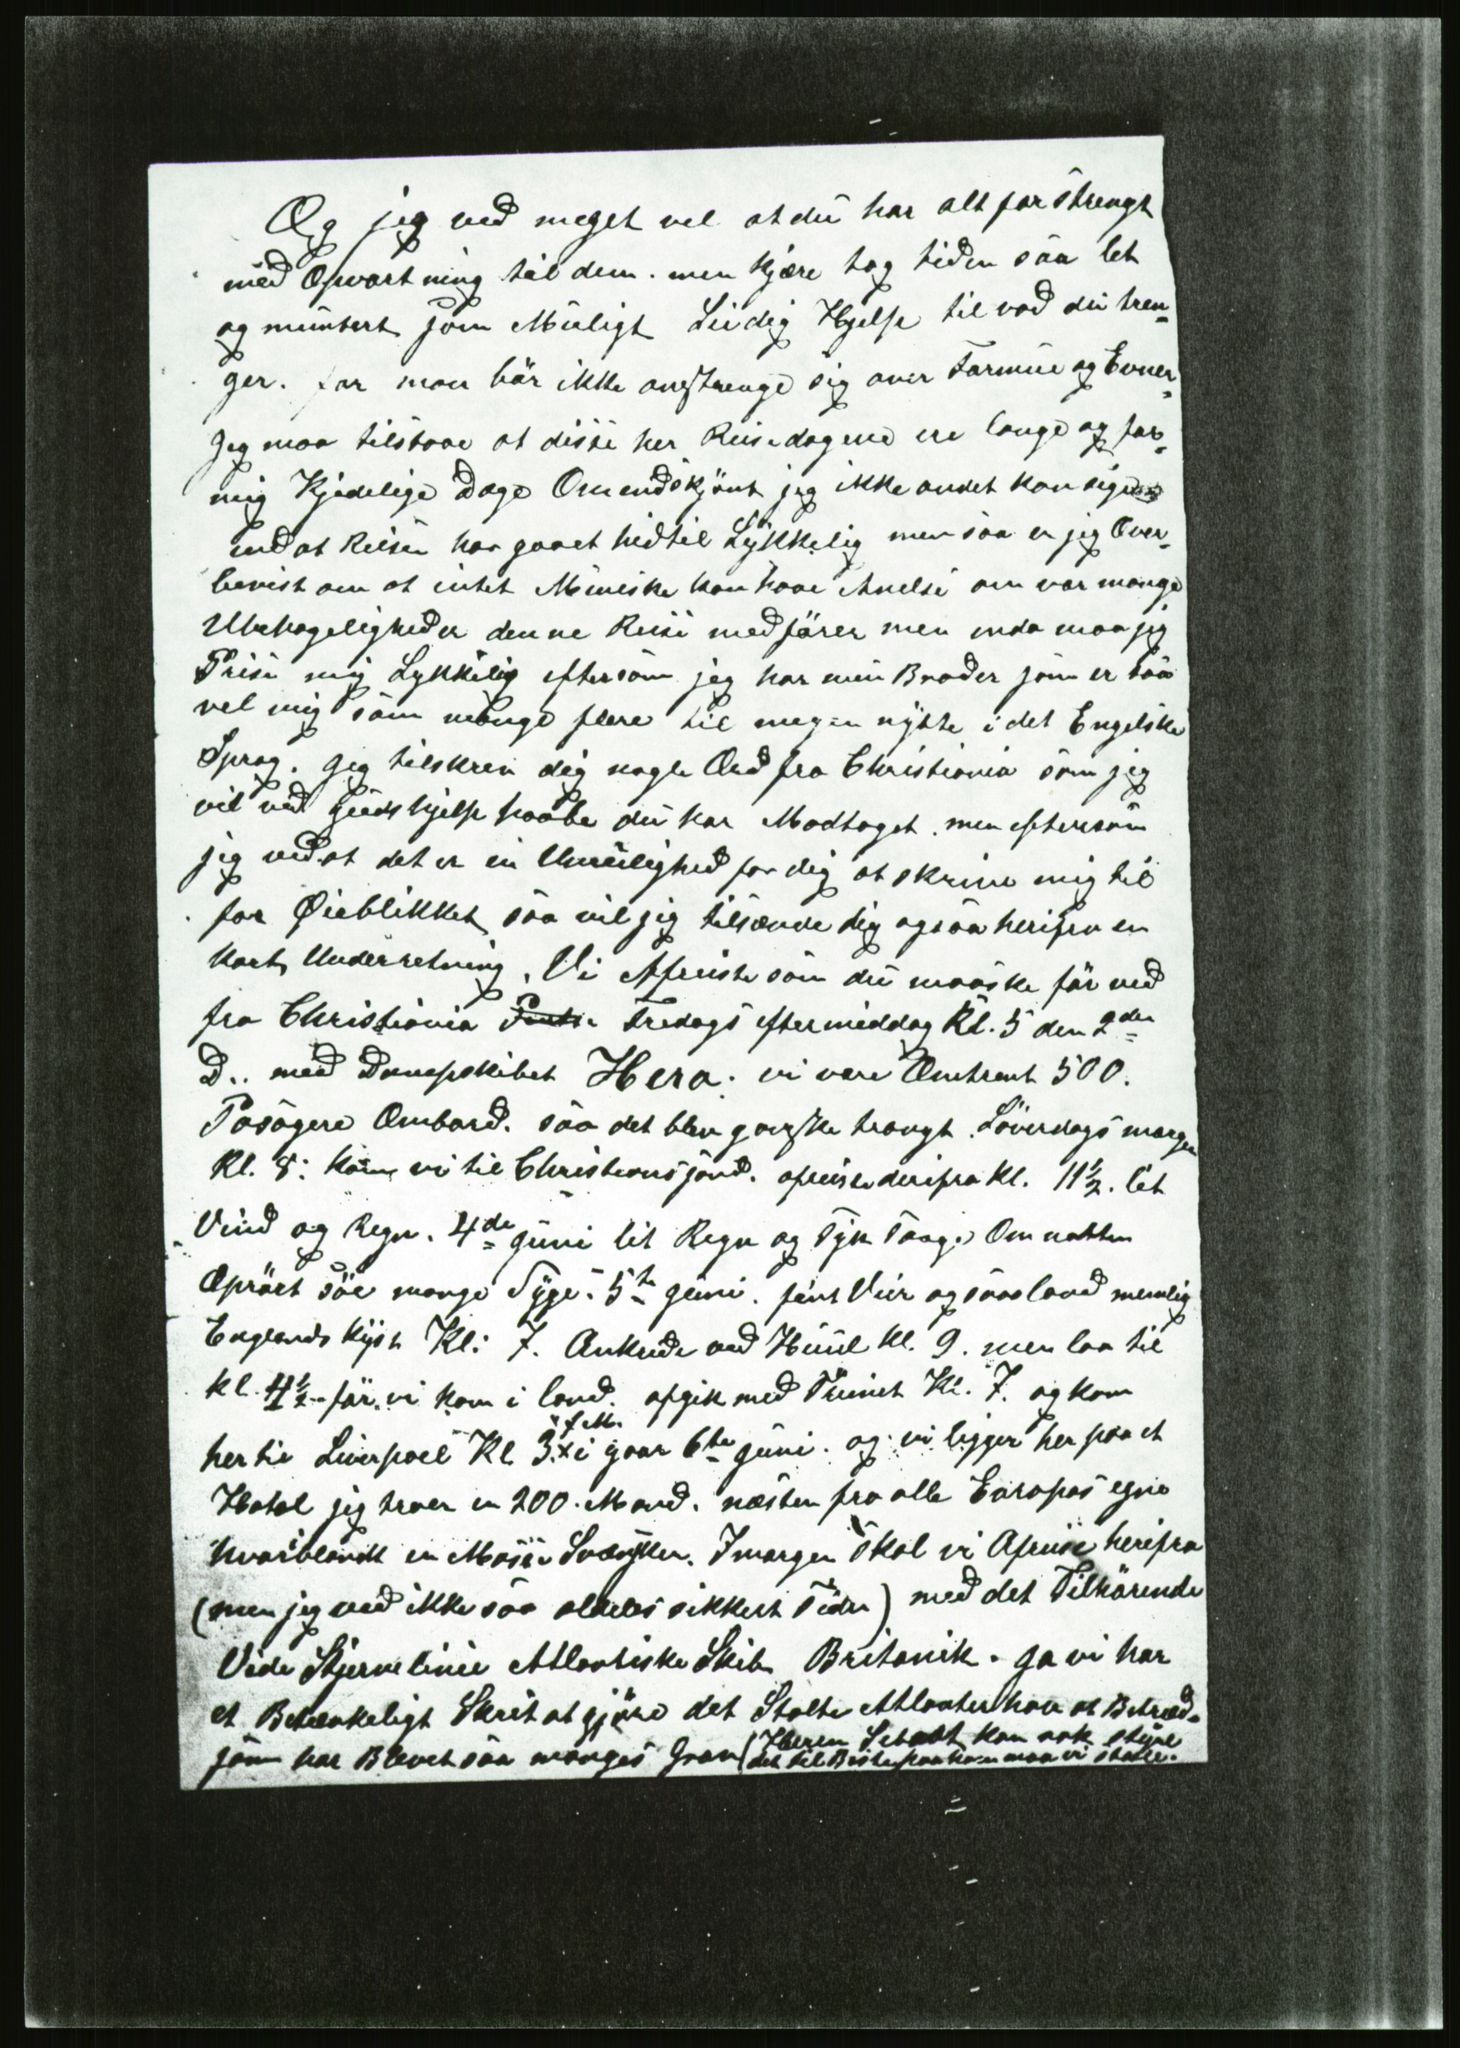 Og jeg ved meget vel at du har alt for strengt
med Opvartning til dem. men kjære tag tiden saa let
og muntert som Muligt Lei dig Hjelp til vad du tren-
ger. for man bör ikke anstrenge sig over Formue og Evner-
Jeg maa tilstaae at disse her Reisedagene ere lange og for-
mig Kjedelige Dage Omendskjönt jeg ikke andet kan sige
end at Reisen har gaaet hidtil Lykkelig men saa er jeg Over-
bevist om at intet Meniske kan have Anelse om vor mange
Ubehageligheder denne Reise medförer men enda maa jeg
Prise mig Lykkelig eftersom jeg har min Broder som er saa
vel mig som mange flere til megen nytte i det Engelske
Sprog. Jeg tilskrev dig nogle Ord fra Christiania som jeg
vil ved Guds hjelp haabe du har Modtaget. men eftersom
jeg ved at det er en Umulighed for dig at skrive mig til
for Øieblikket saa vil jeg tilsænde dig ogsaa herifra en
kort Underretning. Vi Afreiste som du maaske för ved
fra Christiania Fredags eftermiddag Kl. 5 den 2den
D.. med Dampskibet Hero. vi vare Omtrent 500.
Pasagere Ombord. saa det blev ganske trangt. Löverdags morgen
Kl. 8: kom vi til Christiansand. afreiste derifra Kl. 11½. lit
Vind og Regn. 4de Juni lit Regn og Tyk Taage Om natten
Oprört söe mange Syge. 5te Juni. fint Veir og saa land nemlig
Englands Kyst Kl: 7. Ankrede ved Huul Kl. 9. men laa til
kl. 4½ för vi kom i land. afgik med Trinet Kl. 7. og kom
her til Liverpool Kl 3.x i gaar 6te Juni. og vi ligger her paa et
x f M.
Hotel jeg troer en 200. Mand. næsten fra alle Europas egne
hvoriblandt en Masse Svensker. Imorgen skal vi Afreise herifra
(men jeg ved ikke saa aldeles sikkert Tiden) med det Tilhörende
Vide Stjerne linie Atlantiske Skib Britanik. Ja vi har
et Betænkeligt Skrit at gjöre det Stolte Atlanterhav at Betræd-
som har Blevet saa manges Grav (Herren Sebaot kan nok styre
det til Beste paa ham maa vi stole.